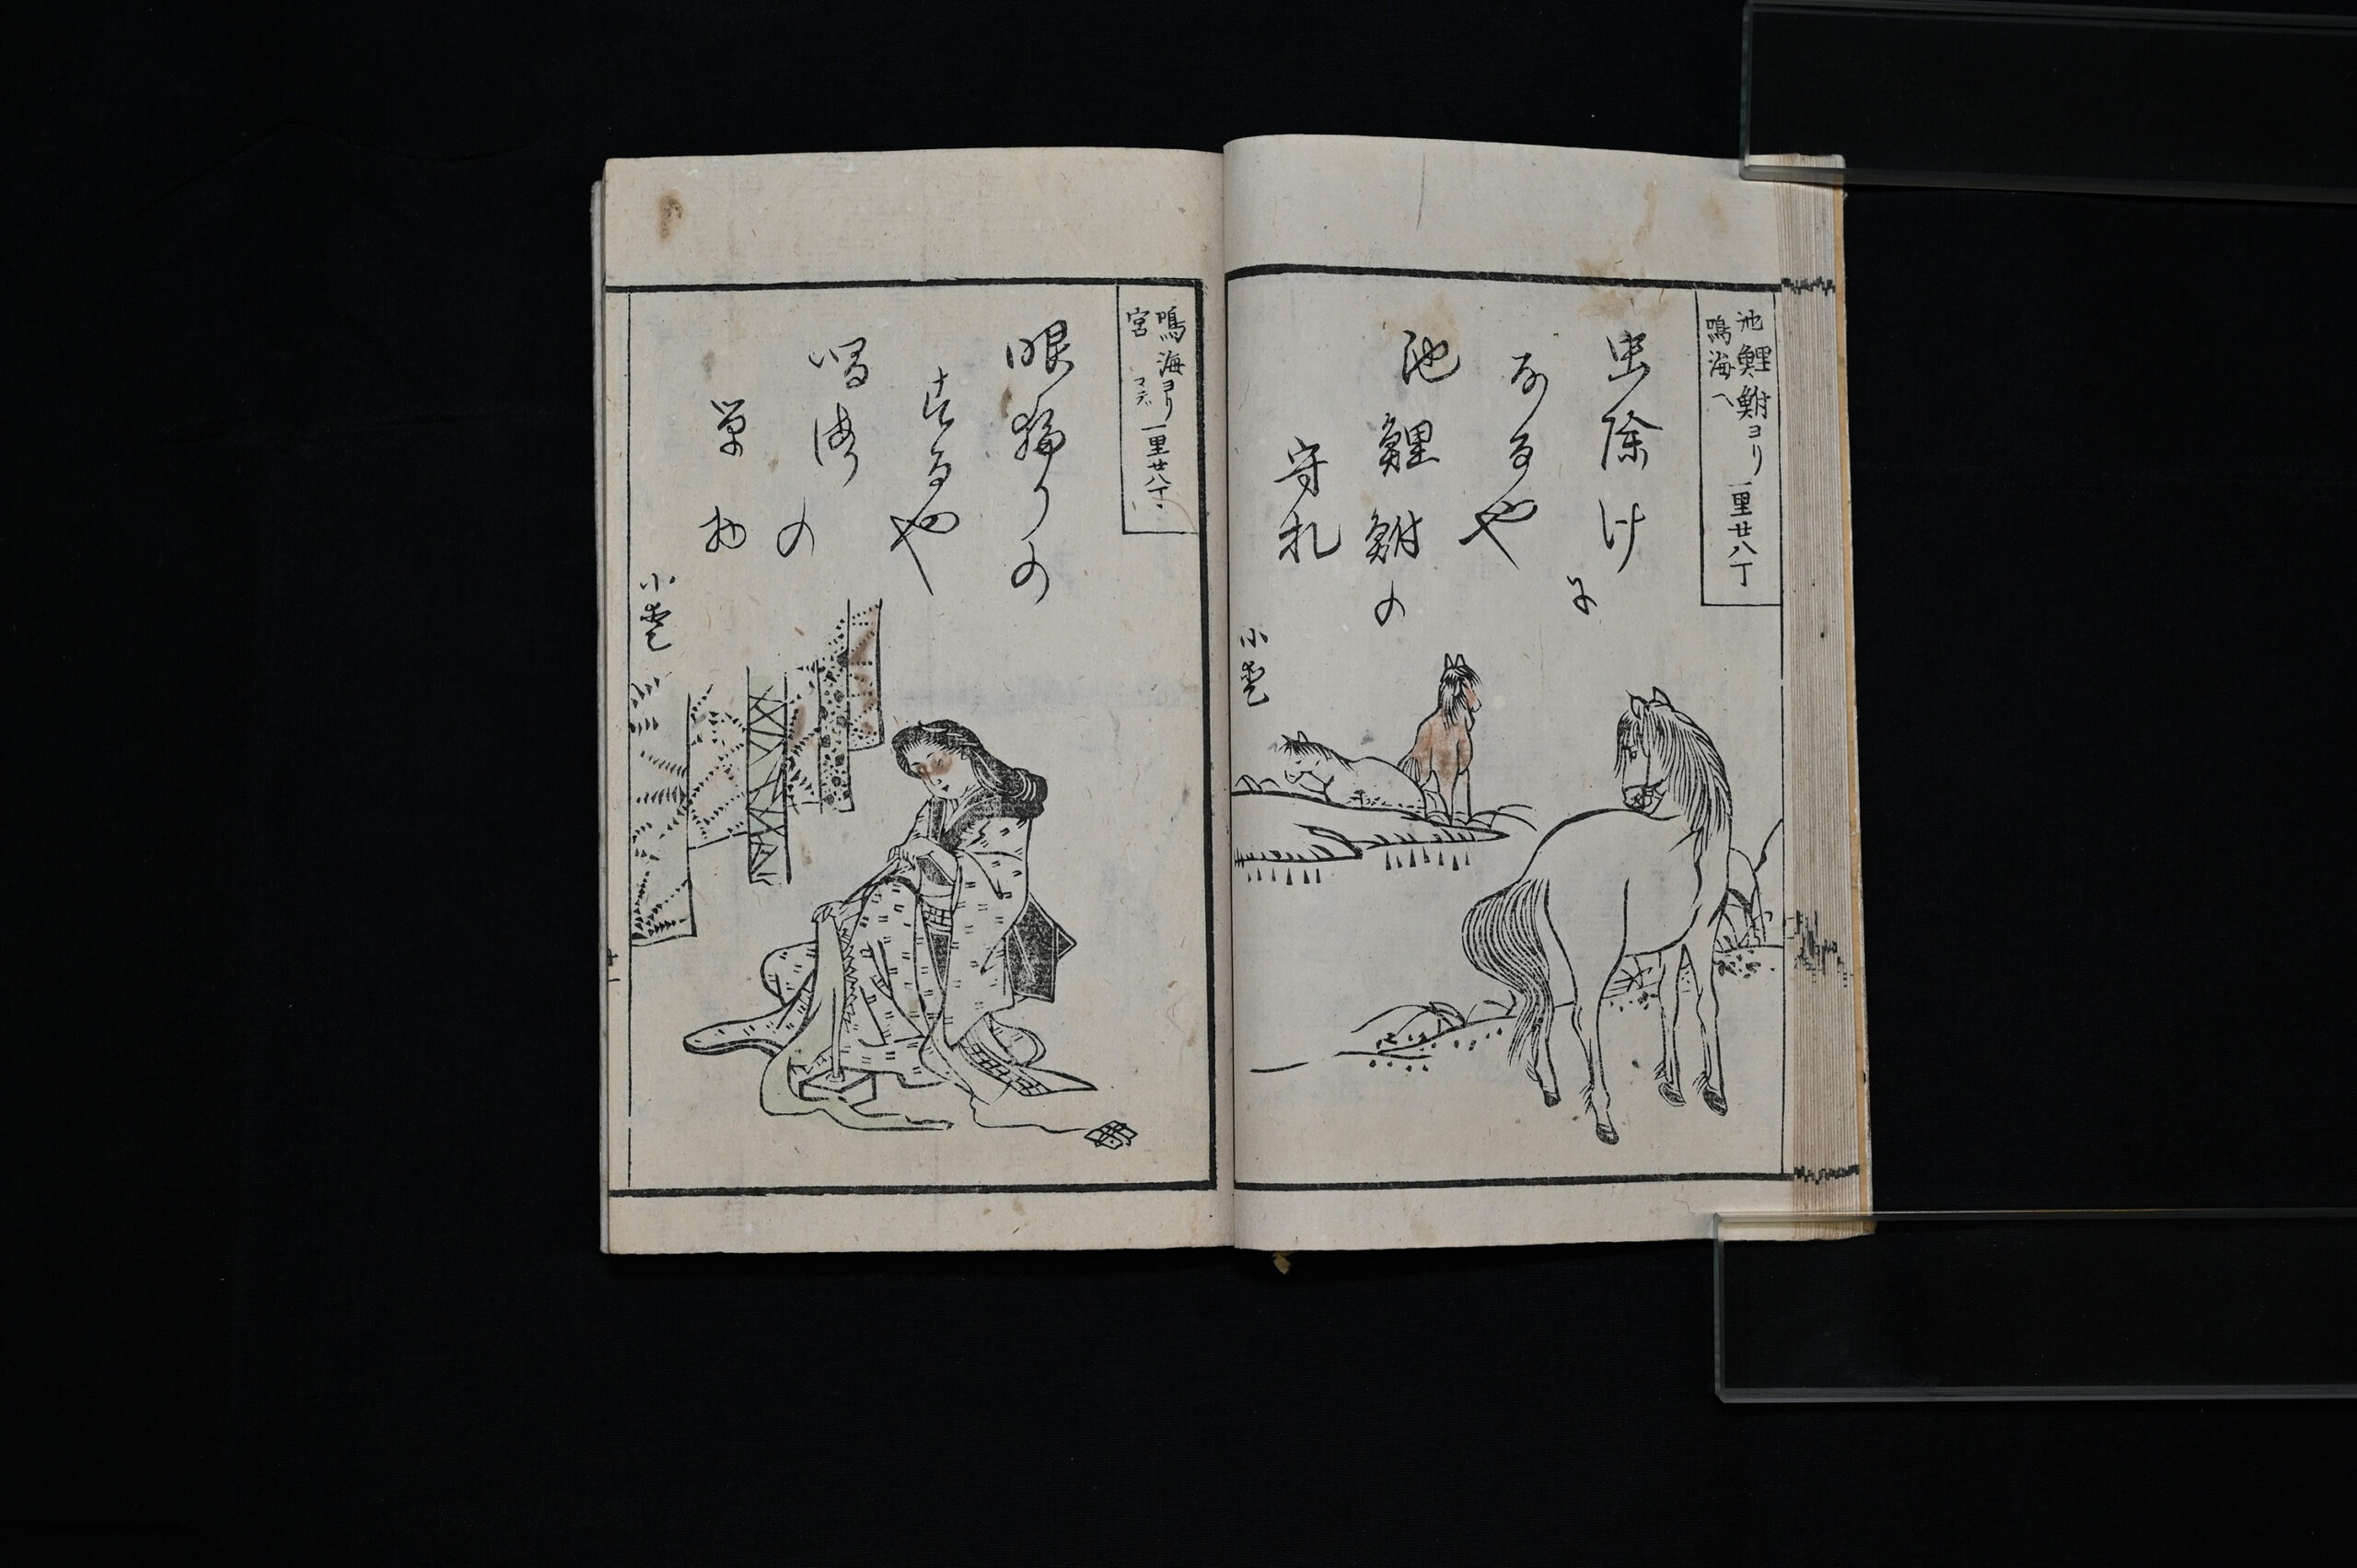 池鯉鮒ヨリ
鳴海ヘ
一里廿八丁
虫除けに
なるや
池鯉鮒の
守札
鳴海ヨリ
宮マデ
一里廿八丁
眼移りの
するや
鳴海の
単物